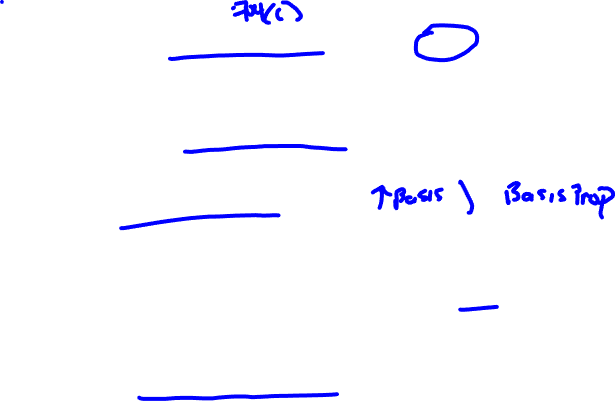 704(c)
↑Basis ) Basis Prop